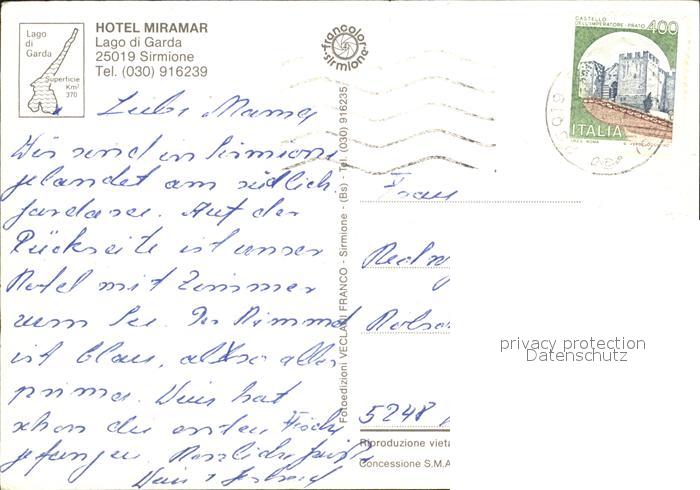 Lago
di
Garda
Superficie
Km²
370
HOTEL MIRAMAR
Lago di Garda
25019 Sirmione
Tel. (030) 916239
francolor
sirmione
CASTELLO
DELL'IMPERATORE - PRATO
400
ITALIA
Liebe Mama
Wir sind in Sirmione
gelandet am südlich.
Gardasee. Auf der
Rückseite ist unser
Hotel mit Zimmer
zum See. Der Himmel
ist blau, also alles
prima. Uwis hat
schon die ersten Fische
gefangen. Herzliche Grüße
Fotoedizioni VECLANI FRANCO - Sirmione - (Bs) - Tel. (030) 916235
Frau
5248
Riproduzione vieta
Concessione S.M.A
privacy protection
Datenschutz